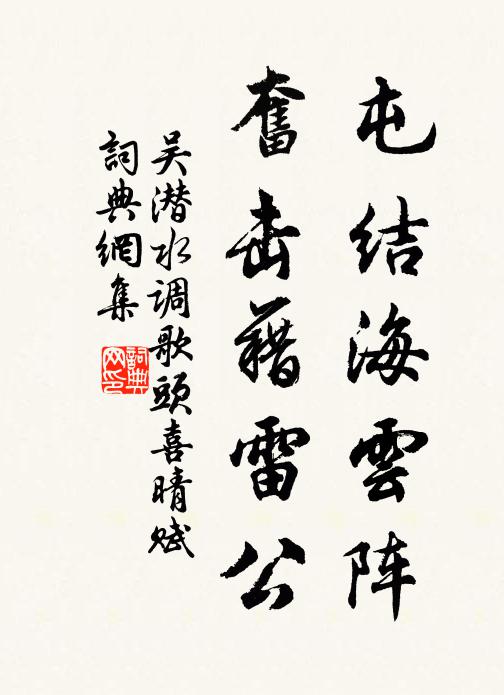 屯结海雲阵
奮击藉雷公
吴潜水调歌頭喜晴赋
詞典網集
詞典网印